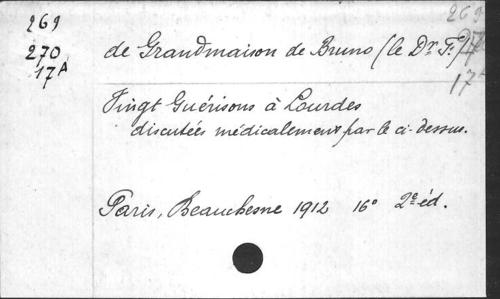 269
270
17A
269
17A
de Grandmaison de Bruno (le Dr. F.)
Vingt Guérisons à Lourdes
discutées médicalement par le ci-dessus.
Paris, Beauchesne 1912 16° 2e éd.